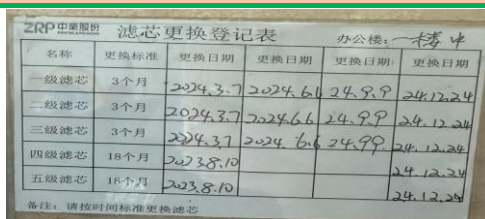 ZRP 中荣股份 滤芯更换登记表 办公楼: 一楼中
名称 更换标准 更换日期 更换日期 更换日期 更换日期
一级滤芯 3个月 2024.3.7 2024.6.6 24.9.9 24.12.24
二级滤芯 3个月 2024.3.7 2024.6.6 24.9.9 24.12.24
三级滤芯 3个月 2024.3.7 2024.6.6 24.9.9. 24.12.24
四级滤芯 18个月 2023.8.10 24.12.24
五级滤芯 18个月 2023.8.10 24.12.24
备注: 请按时间标准更换滤芯